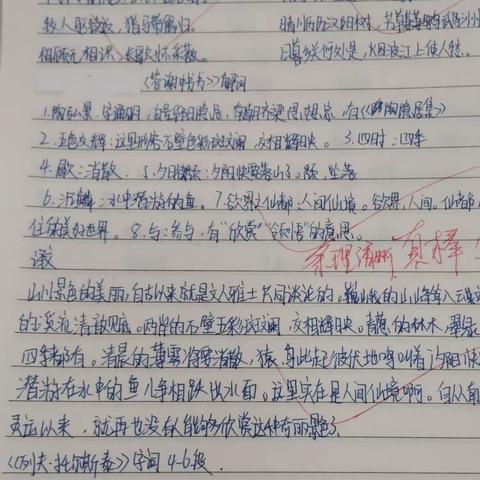 牧人驱犊返，猎马带禽归。 晴川历历汉阳树，芳草萋萋鹦鹉洲
相顾无相识，长歌怀采薇。 日暮乡关何处是，烟波江上使人愁。
《答谢中书书》
1.陶弘景，字通明，
2.五色交辉：这里形容石壁色彩斑斓，交相辉映。 3.四时：四季
4.歇：消散。 5.夕日欲颓：夕阳快要落山了。颓，坠落
6.沉鳞：水中潜游的鱼。 7.欲界之仙都：人间仙境。欲界，人间。仙都
住的美好世界。 8.与：参与，有“欣赏”“领悟”的意思。
条理清晰，真棒！
译
山川景色的美丽，自古以来就是文人雅士共同谈论的。巍峨的山峰耸入云
的溪流清澈见底。两岸的石壁五彩斑斓，交相辉映。青葱的林木，翠绿
四季都有。清晨的薄雾将要消散，猿、鸟此起彼伏地鸣叫着；夕阳快
潜游在水中的鱼儿争相跃出水面。这里实在是人间仙境啊。自从南
灵运以来，就再也没有人能够欣赏这种奇丽景色了
《列夫·托尔斯泰》字词 4-6段.